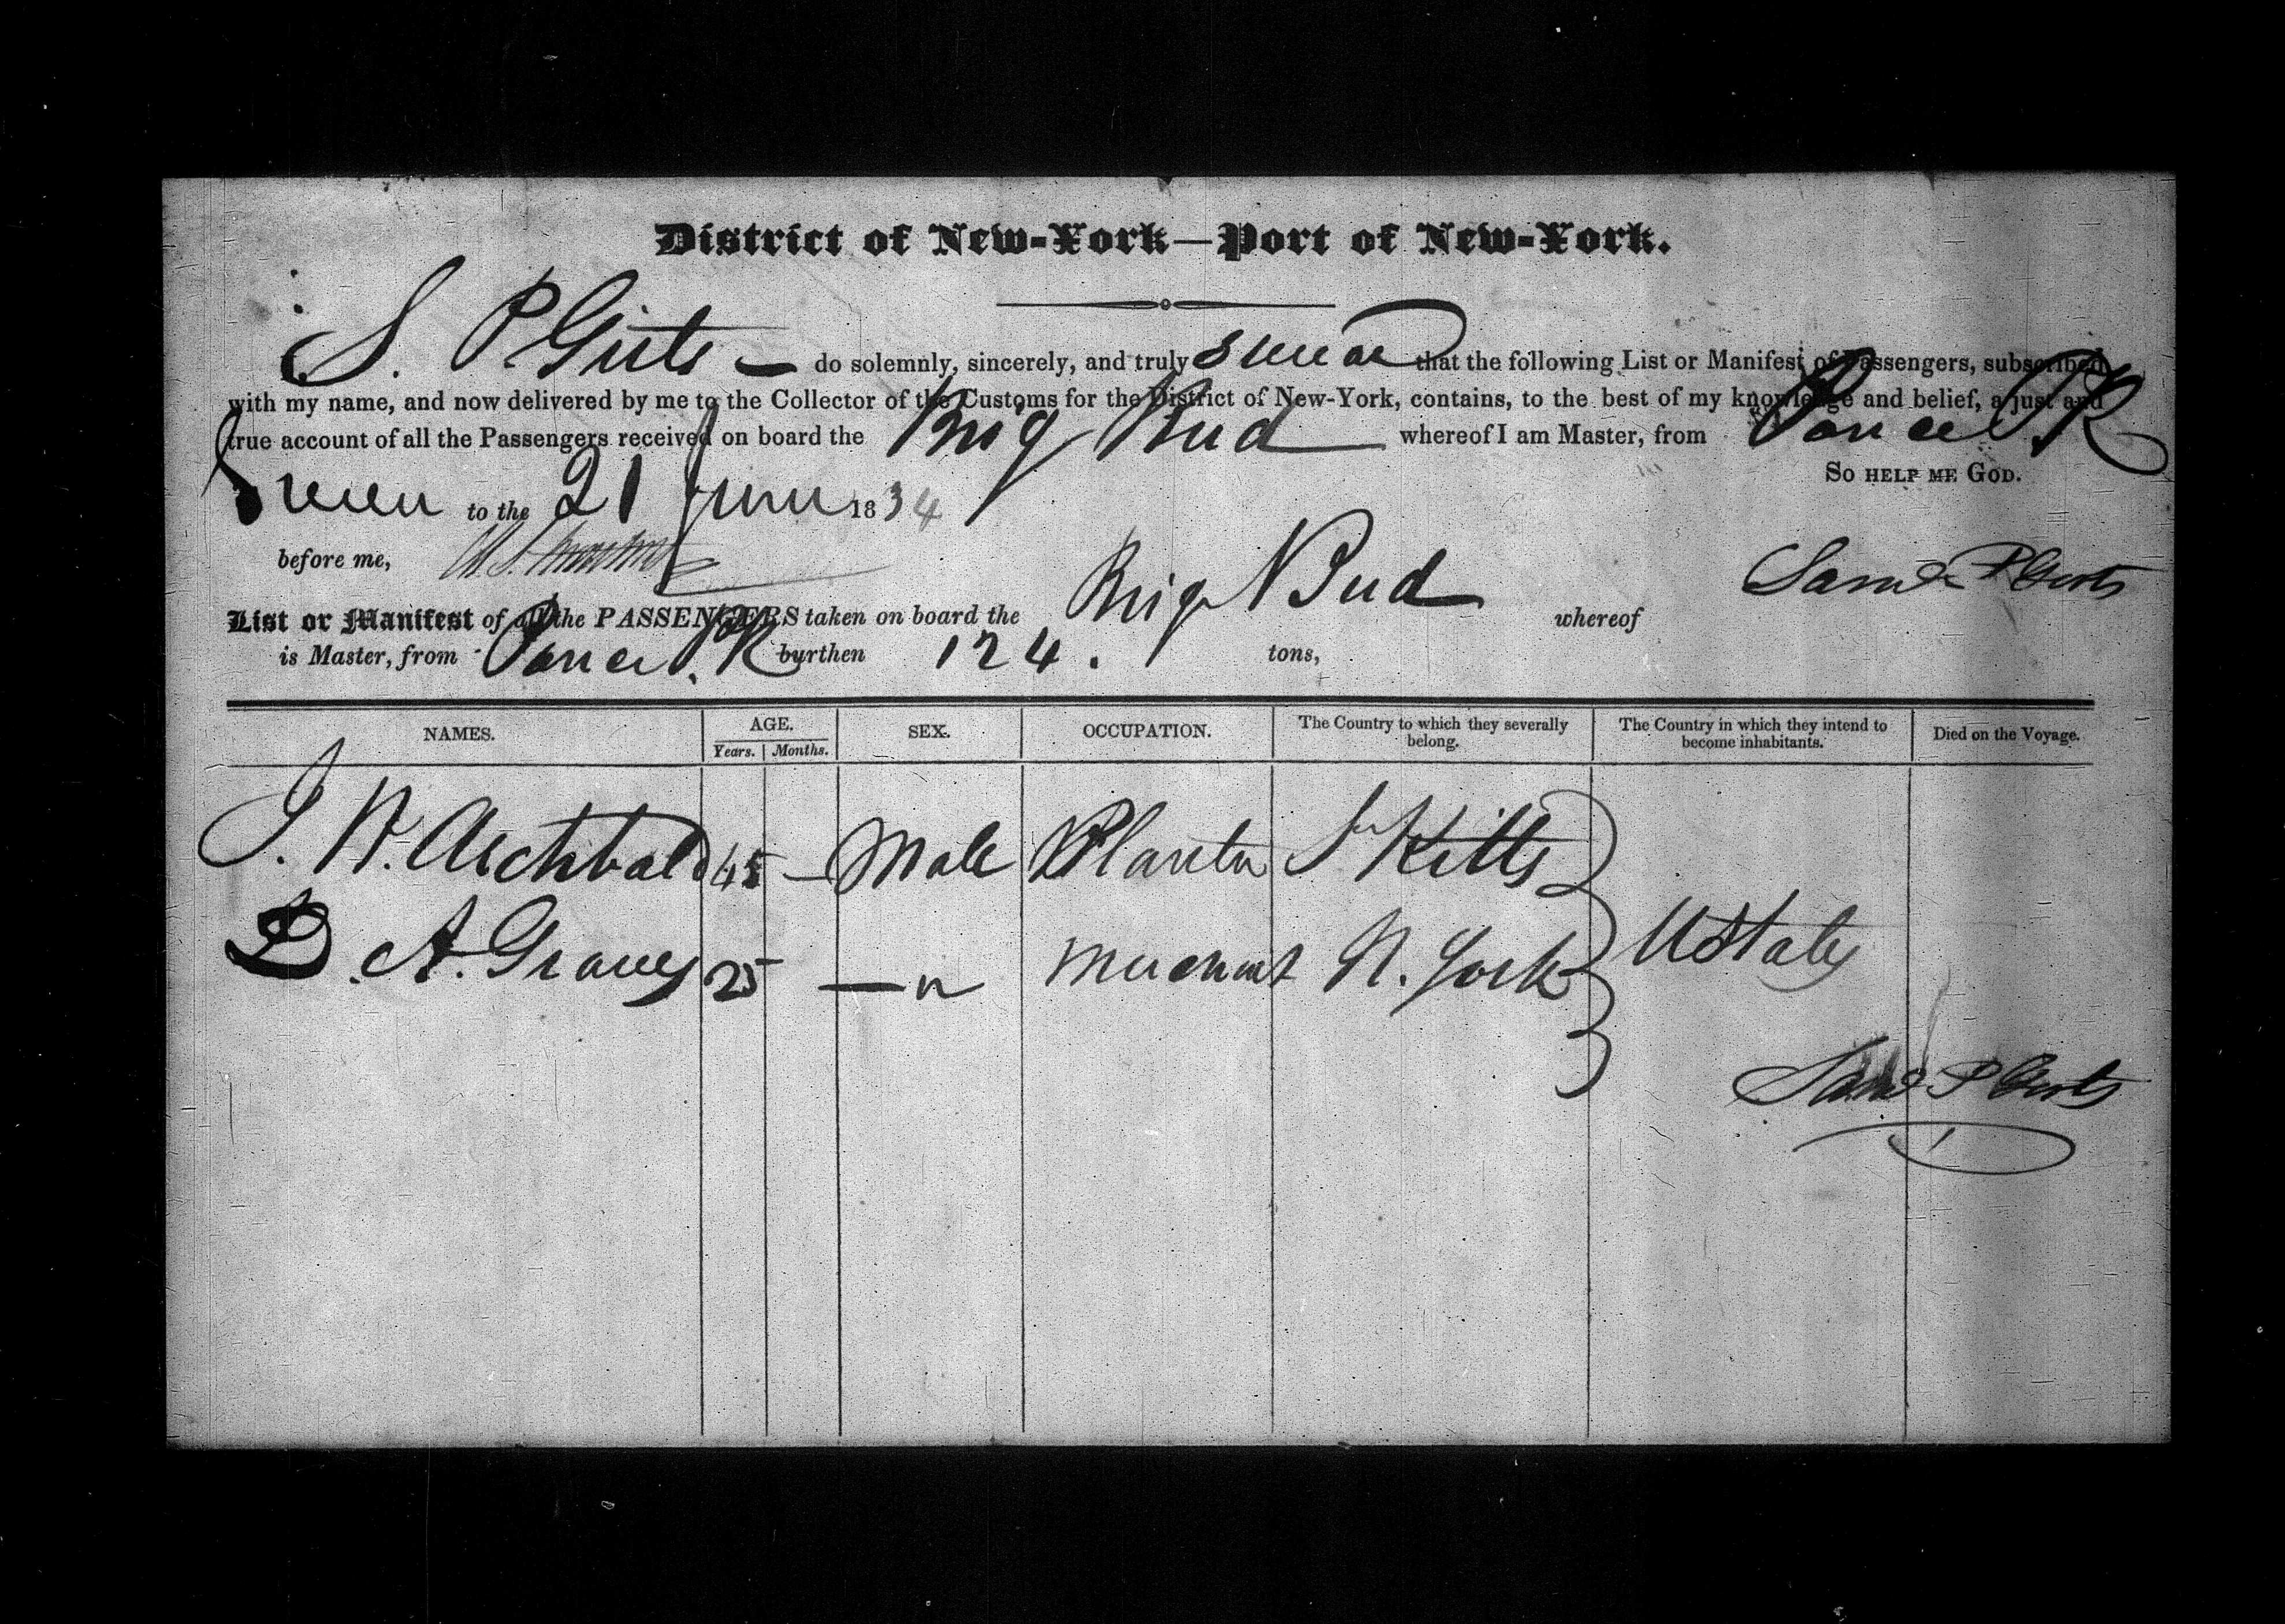 District of New-York—Port of New-York.
S. P. do solemnly, sincerely, and truly swear that the following List or Manifest of Passengers, subscribed
with my name, and now delivered by me to the Collector of the Customs for the District of New-York, contains, to the best of my knowledge and belief, a just and
true account of all the Passengers received on board the Brig whereof I am Master, from Ponce P.R
So HELP ME GOD.
Sworn to the 21 June 1834
before me,
Saml P
List or Manifest of all the PASSENGERS taken on board the Brig whereof
is Master, from Ponce P.R burthen 124. tons,
NAMES. AGE. SEX. OCCUPATION. The Country to which they severally belong. The Country in which they intend to become inhabitants. Died on the Voyage.
Years. Months.
J. W. Archbald 45 — Male Planter St Kitts
D. A. Graves 25 — " Merchant N. York U States
Saml P